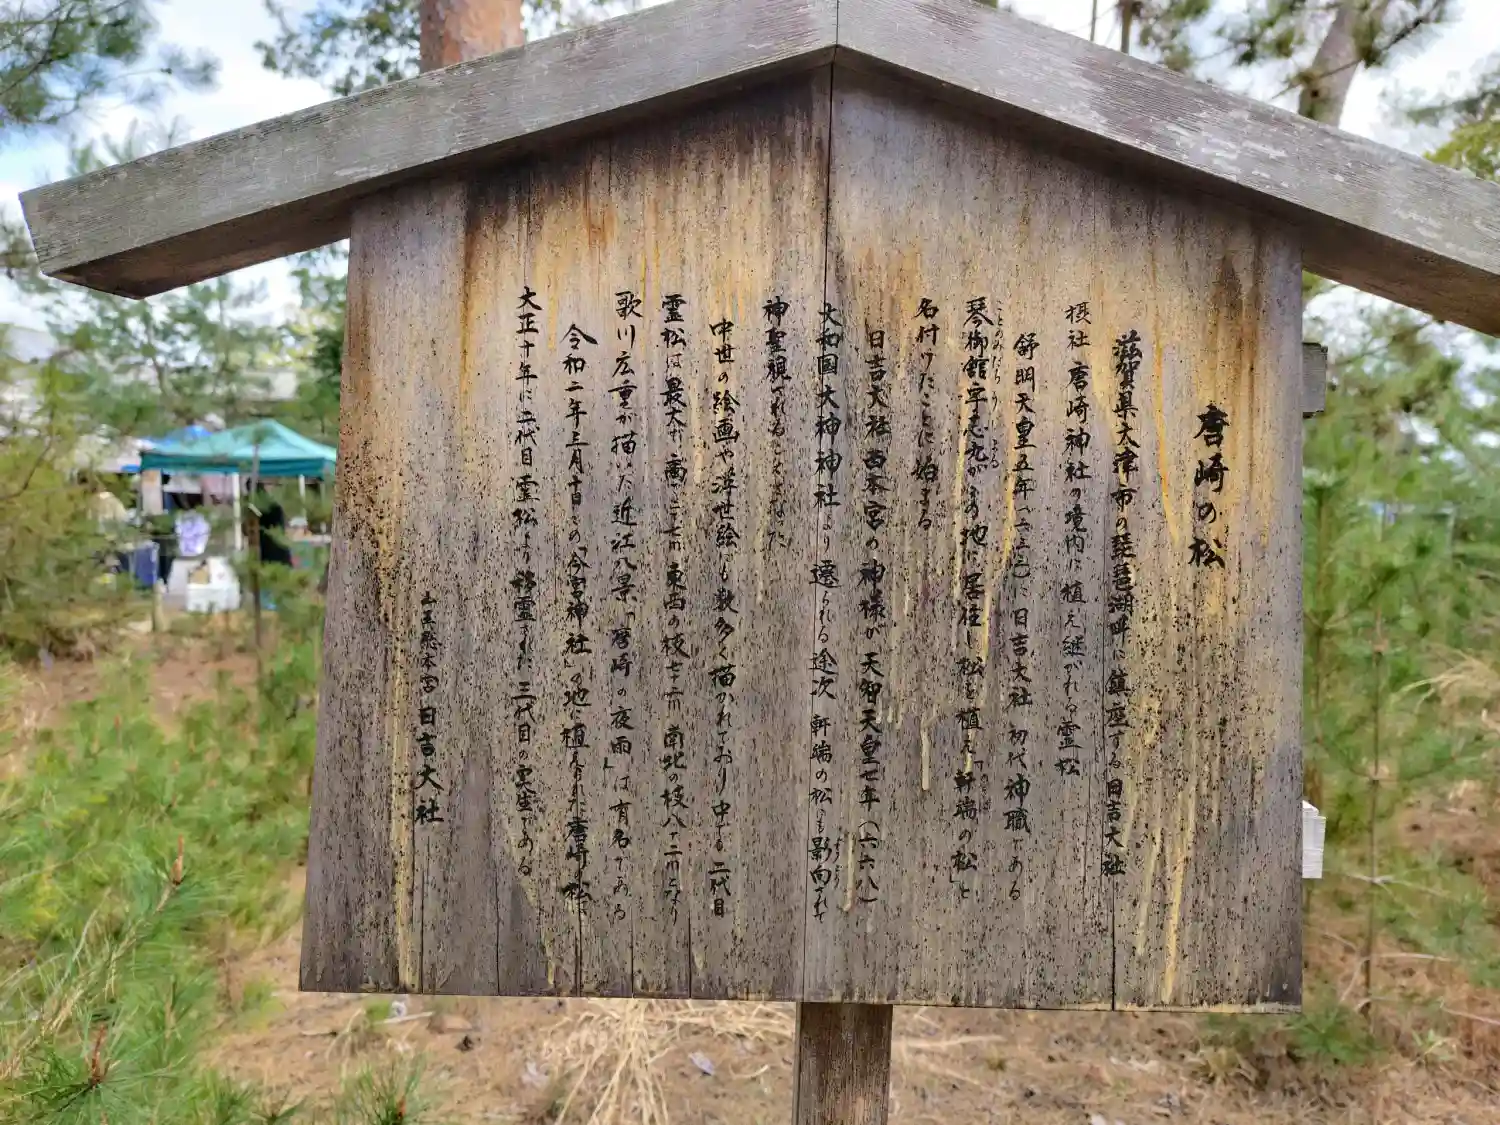 唐崎の松
滋賀県大津市の琵琶湖畔に鎮座する日吉大社
摂社 唐崎神社の境内に植え継がれる霊松
舒明天皇五年(六三三)に日吉大社 初代神職である
琴御館宇志丸がこの地に居住し松を植え「軒端の松」と
名付けたことに始まる
日吉大社西本宮の神様が天智天皇七年(六六八)
大和国大神神社より遷られる途次 軒端の松にも影向されて
神聖視されることとなった
中世の絵画や浮世絵にも数多く描かれており中でも二代目
霊松は最大で高さ 東西の枝七十二m 南北の枝八十二mとなり
歌川広重が描いた近江八景「唐崎の夜雨」は有名である
令和二年三月十日この「今宮神社」の地に植えられた唐崎の松は
大正十年に二代目霊松より移霊された三代目の実生である
山王総本宮 日吉大社